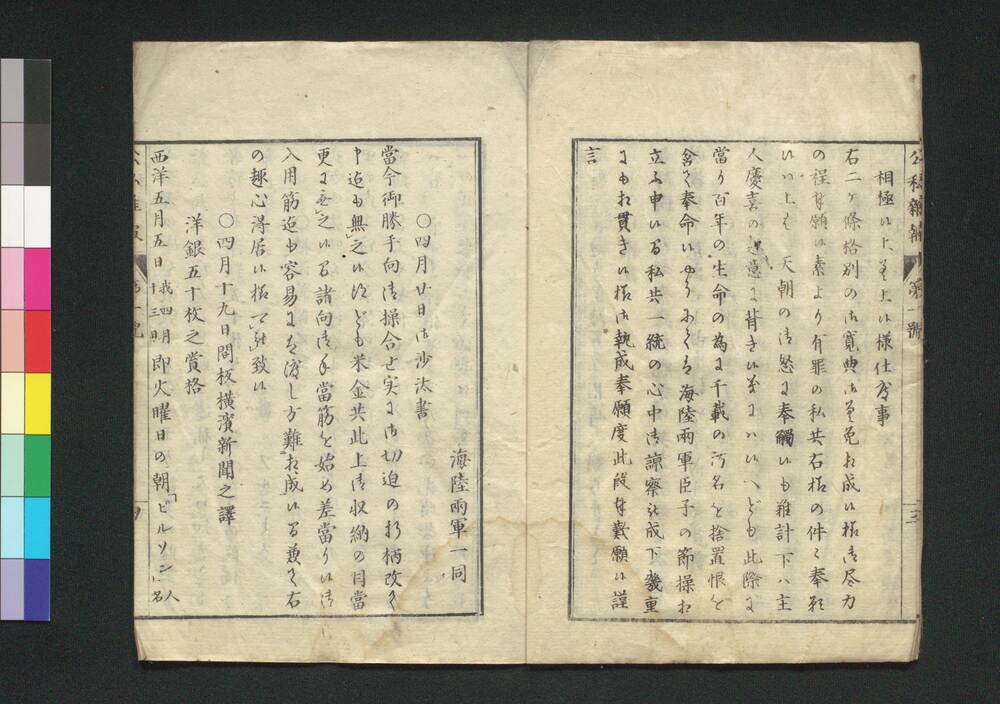 公私雜報 第一號
相極候上差上候様仕度事
右二ヶ條格別の御寛典御差免相成候様御尽力
の程奉願候素より有罪の私共右様の件々奉歎
候上は 天朝の御怒に奉觸候も難計下ハ主
人慶喜の素意に背き候筋にハ候へども此際に
當り百年の生命の為に千載の汚名を捨置恨を
含て奉命候やうにては海陸兩軍臣子の節操相
立不申候間私共一統の心中御諒察被成下幾重
にも相貫き候様御執成奉願度此段奉歎願候謹
言
三
海陸兩軍一同
〇四月廿日御沙汰書
當今御勝手向御操合セ実に御切迫の折柄改て
申迄も無之候得ども米金共此上御収納の目當
更に無之候間諸向御手當筋を始め差當り候御
入用筋迄も容易に御渡し方難相成候間兼て右
の趣心得居候様可被致候
〇四月十九日開板横濱新聞之譯
洋銀五十枚之賞格
西洋五月五日我四月十三日即火曜日の朝「ピルソン」人名